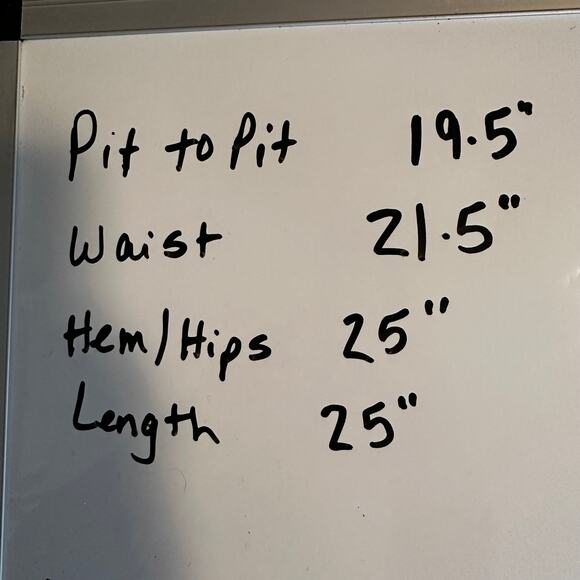 Pit to Pit 19.5"
Waist 21.5"
Hem/Hips 25"
Length 25"